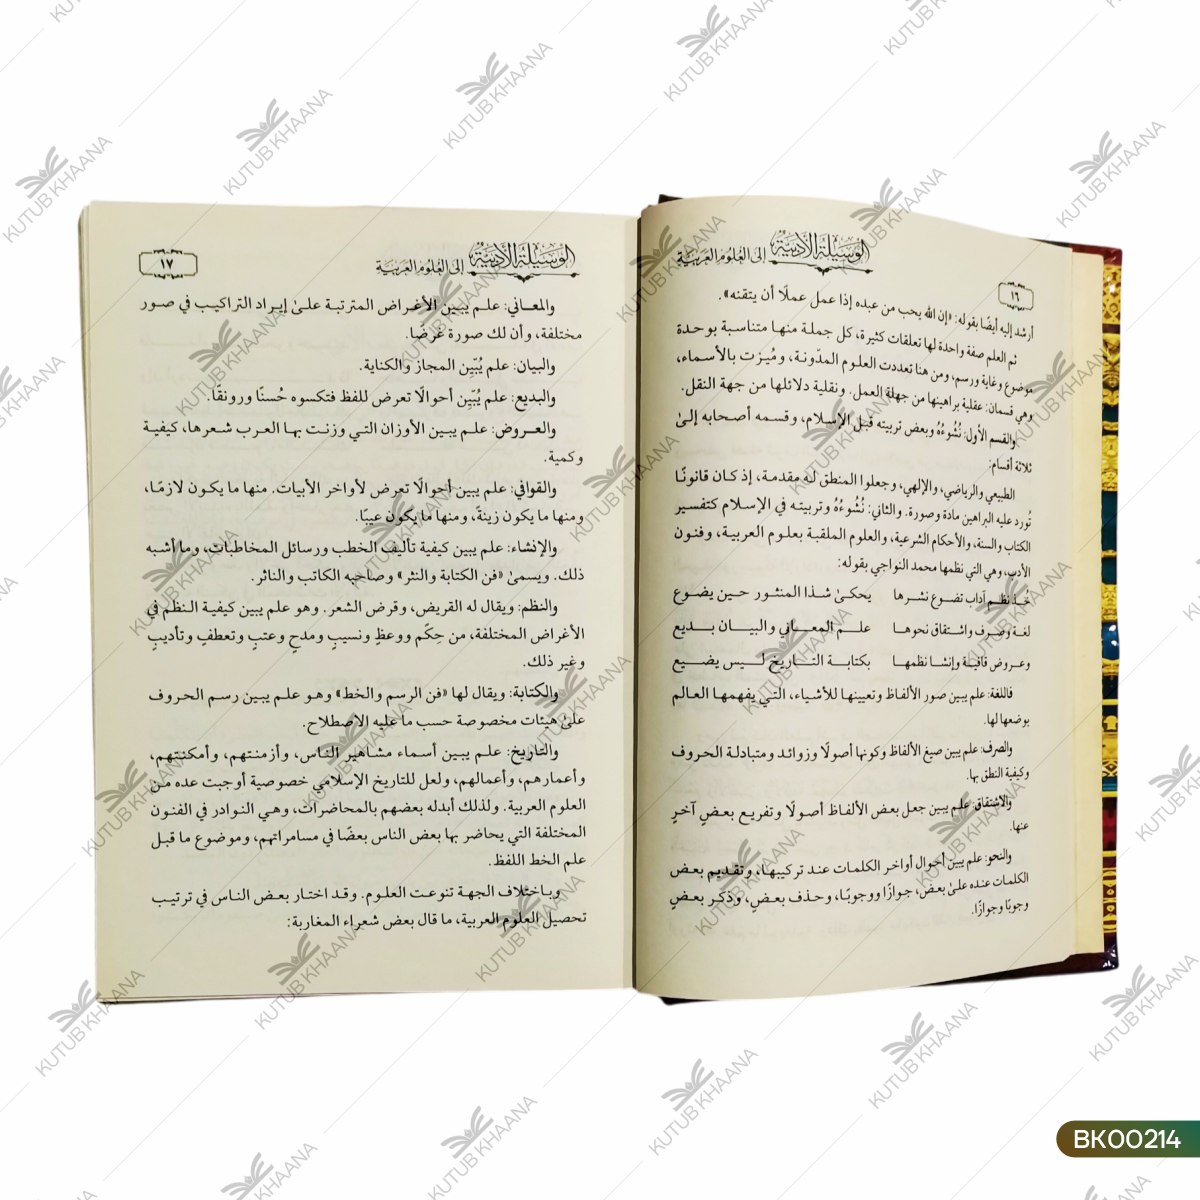 الوسيلة الأدبية إلى العلوم العربية
١٦
أرشد إليه أيضًا بقوله: «إن الله يحب من عبده إذا عمل عملًا أن يتقنه».
ثم العلم صفة واحدة لها تعلقات كثيرة، كل جملة منها متناسبة بوحدة
موضوع وغاية ورسم، ومن هنا تعددت العلوم المدّونة، ومُيزت بالأسماء،
وهي قسمان: عقلية براهينها من جهلة العمل. ونقلية دلائلها من جهة النقل.
والقسم الأول: نُشُوءُهُ وبعض تربيته قبل الإسلام، وقسمه أصحابه إلىٰ
ثلاثة أقسام:
الطبيعي والرياضي، والإلهي، وجعلوا المنطق له مقدمة، إذ كان قانونًا
تُورد عليه البراهين مادة وصورة. والثاني: نُشُوءُهُ وتربيته في الإسلام كتفسير
الكتاب والسنة، والأحكام الشرعية، والعلوم الملقبة بعلوم العربية، وفنون
الأدب، وهي التي نظمها محمد النواجي بقوله:
خُذ نظم آداب تضوع نشرها يحكىٰ شذا المنثور حين يضوع
لغة وصرف واشتقاق نحوها علم المعاني والبيان بديع
وعروض قافية وإنشا نظمها بكتابة التاريخ ليس يضيع
فاللغة: علم يبين صور الألفاظ وتعيينها للأشياء، التي يفهمها العالم
بوضعها لها.
والصرف: علم يبين صيغ الألفاظ وكونها أصولًا وزوائد ومتبادلة الحروف
وكيفية النطق بها.
والاشتقاق: علم يبين جعل بعض الألفاظ أصولًا وتفريع بعضٍ آخرٍ
عنها.
والنحو: علم يبين أحوال أواخر الكلمات عند تركيبها، وتقديم بعض
الكلمات عنده علىٰ بعض، جوازًا ووجوبًا، وحذف بعضٍ، وذكر بعضٍ
وجوبًا وجوازًا.
الوسيلة الأدبية إلى العلوم العربية
١٧
والمعاني: علم يبين الأغراض المترتبة علىٰ إيراد التراكيب في صور
مختلفة، وأن لك صورة غرضا.
والبيان: علم يُبّين المجاز والكناية.
والبديع: علم يُبّين أحوالًا تعرض للفظ فتكسوه حُسنًا ورونقًا.
والعروض: علم يبين الأوزان التي وزنت بها العرب شعرها، كيفية
وكمية.
والقوافي: علم يبين أحوالًا تعرض لأواخر الأبيات. منها ما يكون لازمًا،
ومنها ما يكون زينةً، ومنها ما يكون عيبًا.
والإنشاء: علم يبين كيفية تأليف الخطب ورسائل المخاطبات، وما أشبه
ذلك. ويسمىٰ «فن الكتابة والنثر» وصاحبه الكاتب والناثر.
والنظم: ويقال له القريض، وقرض الشعر. وهو علم يبين كيفية النظم في
الأغراض المختلفة، من حِكَم ووعظٍ ونسيبٍ ومدحٍ وعتبٍ وتعطفٍ وتأديبٍ
وغير ذلك.
والكتابة: ويقال لها «فن الرسم والخط» وهو علم يبين رسم الحروف
علىٰ هيئات مخصوصة حسب ما عليه الإصطلاح.
والتاريخ: علم يبين أسماء مشاهير الناس، وأزمنتهم، وأمكنتهم،
وأعمارهم، وأعمالهم، ولعل للتاريخ الإسلامي خصوصية أوجبت عده من
العلوم العربية. ولذلك أبدله بعضهم بالمحاضرات، وهي النوادر في الفنون
المختلفة التي يحاضر بها بعض الناس بعضًا في مسامراتهم، وموضوع ما قبل
علم الخط اللفظ.
وباختلاف الجهة تنوعت العلوم. وقد اختار بعض الناس في ترتيب
تحصيل العلوم العربية، ما قال بعض شعراء المغاربة:
KUTUB KHAANA
BK00214